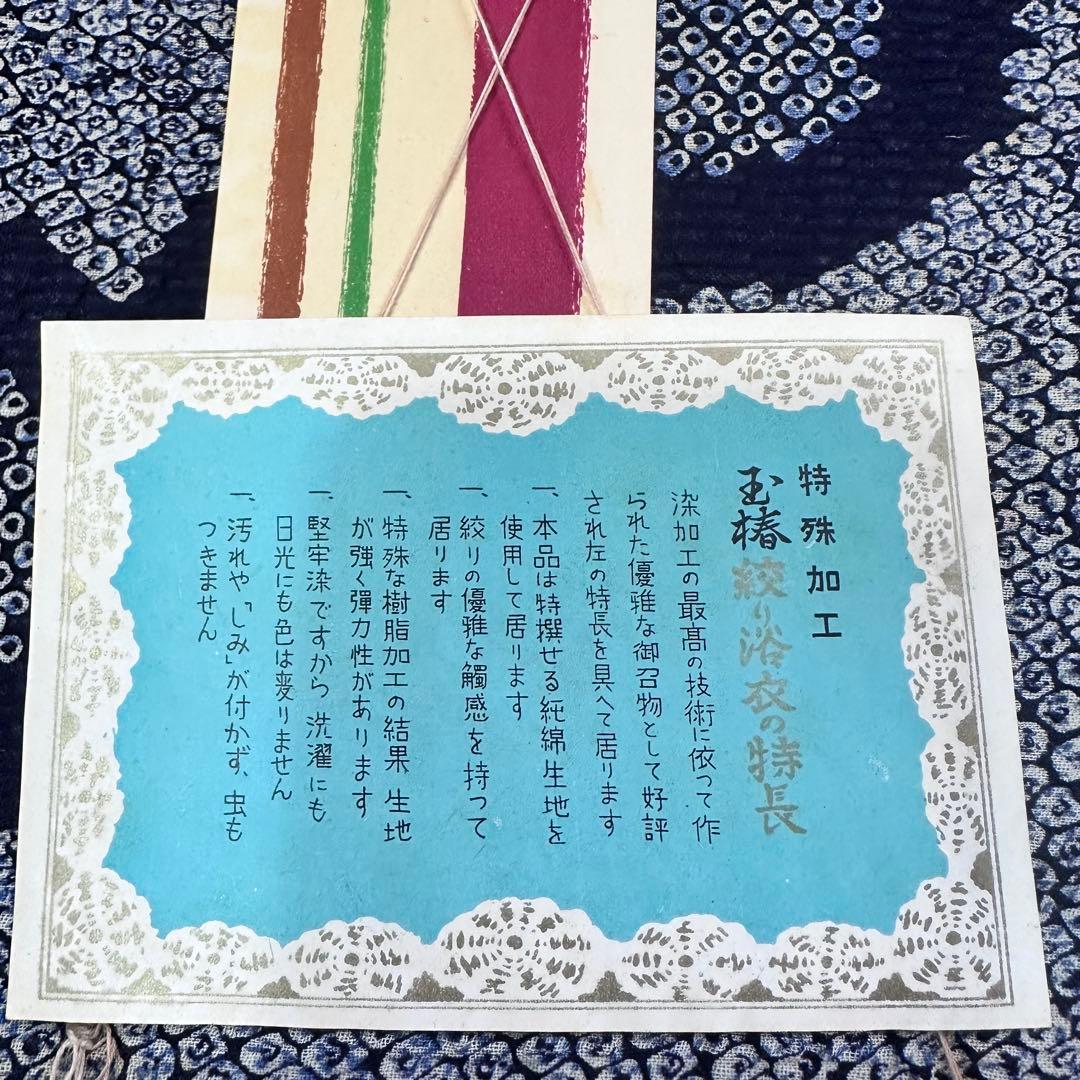 特殊加工
玉椿 絞り浴衣の特長
染加工の最高の技術に依って作
られた優雅な御召物として好評
され左の特長を具へて居ります
一、本品は特撰せる純綿生地を
使用して居ります
一、絞りの優雅な觸感を持つて
居ります
一、特殊な樹脂加工の結果、生地
が強く彈力性があります
一、堅牢染ですから 洗濯にも
日光にも色は変りません
一、汚れや「しみ」が付かず、虫も
つきません